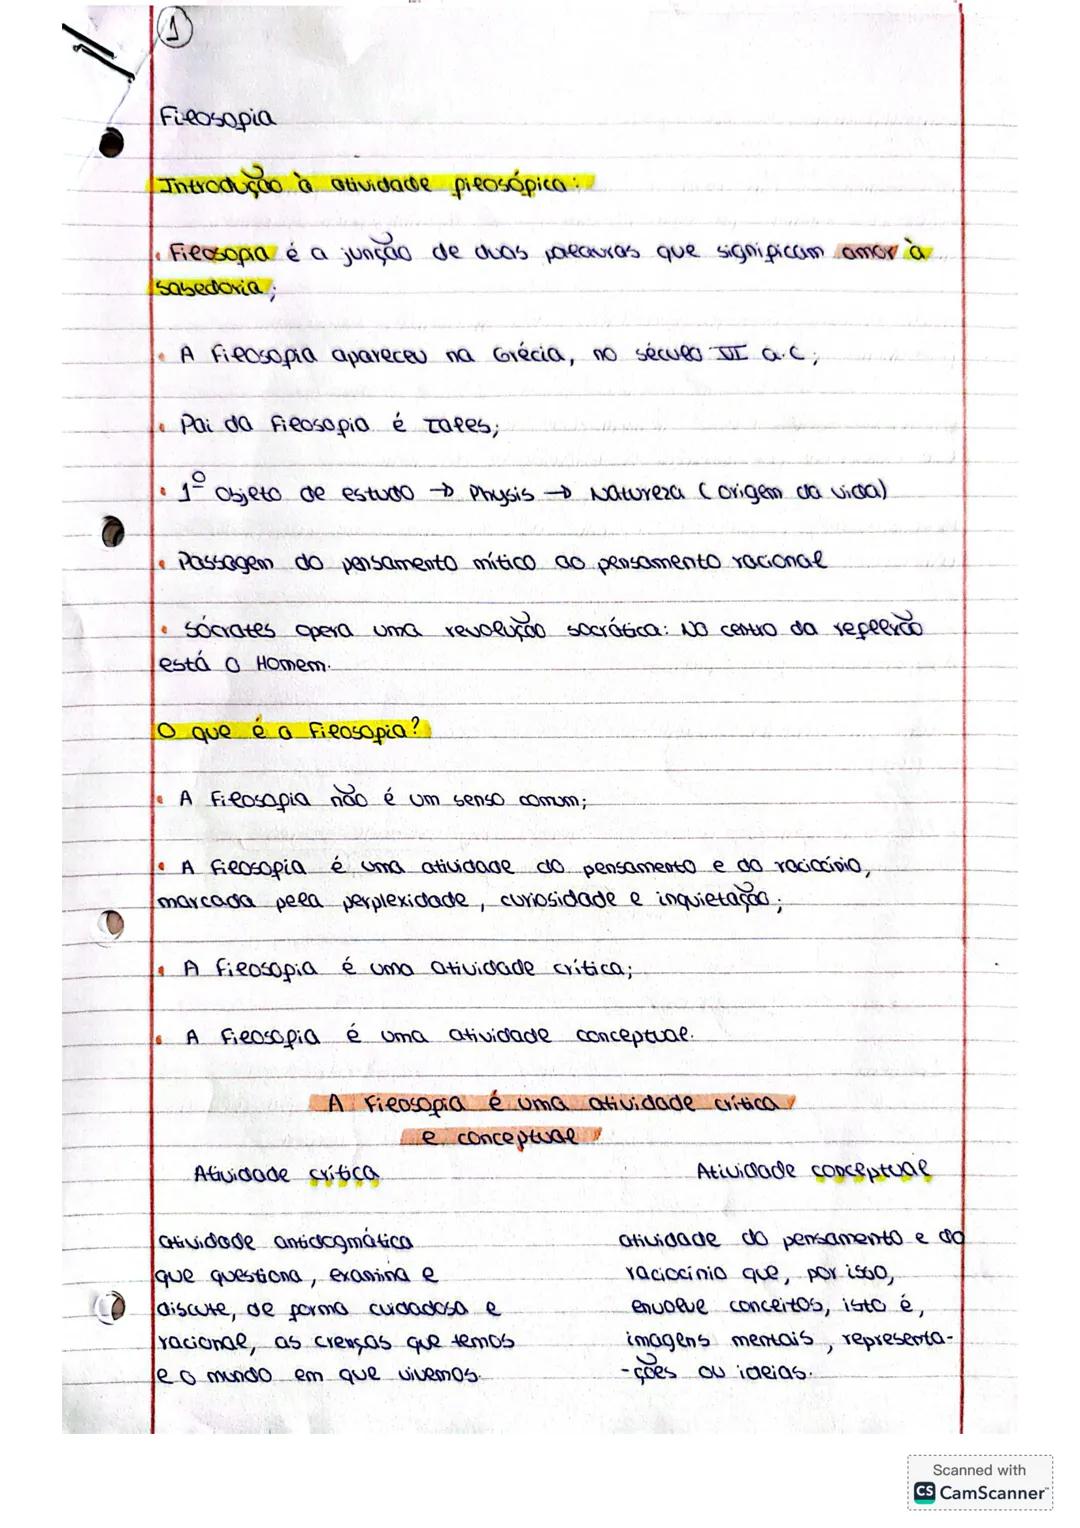 1
Filosofia
Introdução à atividade filosófica:
• Filosofia é a junção de duas palavras que significam amor à
sabedoria;
• A Filosofia apareceu na Grécia, no século VI a.C;
• Pai da Filosofia é Tales;
• 1º Objeto de estudo → Physis → Natureza (origem da vida)
• Passagem do pensamento mítico ao pensamento racional
• Sócrates opera uma revolução socrática: No centro da reflexão
está o Homem.
O que é a Filosofia?
• A Filosofia não é um senso comum;
• A Filosofia é uma atividade do pensamento e do raciocínio,
marcada pela perplexidade, curiosidade e inquietação;
• A Filosofia é uma atividade crítica;
• A Filosofia é uma atividade conceptual.
A Filosofia é uma atividade crítica
e conceptual
Atividade crítica
atividade antidogmática
que questiona, examina e
discute, de forma cuidadosa e
racional, as crenças que temos
e o mundo em que vivemos.
Atividade conceptual
atividade do pensamento e do
raciocínio que, por isso,
envolve conceitos, isto é,
imagens mentais, representa-
-ções ou ideias.
Scanned with
CS CamScanner